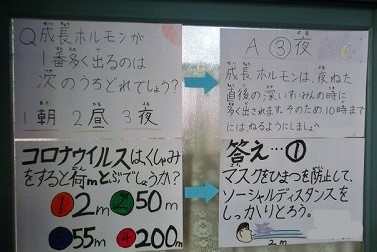 Q 成長ホルモンが
1番多く出るのは
次のうちどれでしょう?
1 朝 2 昼 3 夜
A ③ 夜
成長ホルモンは、夜ねた
直後の深いすいみんの時に
多く出されます。そのため、10時まで
には、ねるようにしましょう
コロナウイルスは、くしゃみ
をすると何mとぶでしょうか?
① 2m ② 50m
③ 55m ④ 200m
答え…①
マスクをひまつを防止して、
ソーシャルディスタンスを
しっかりとろう。
2m